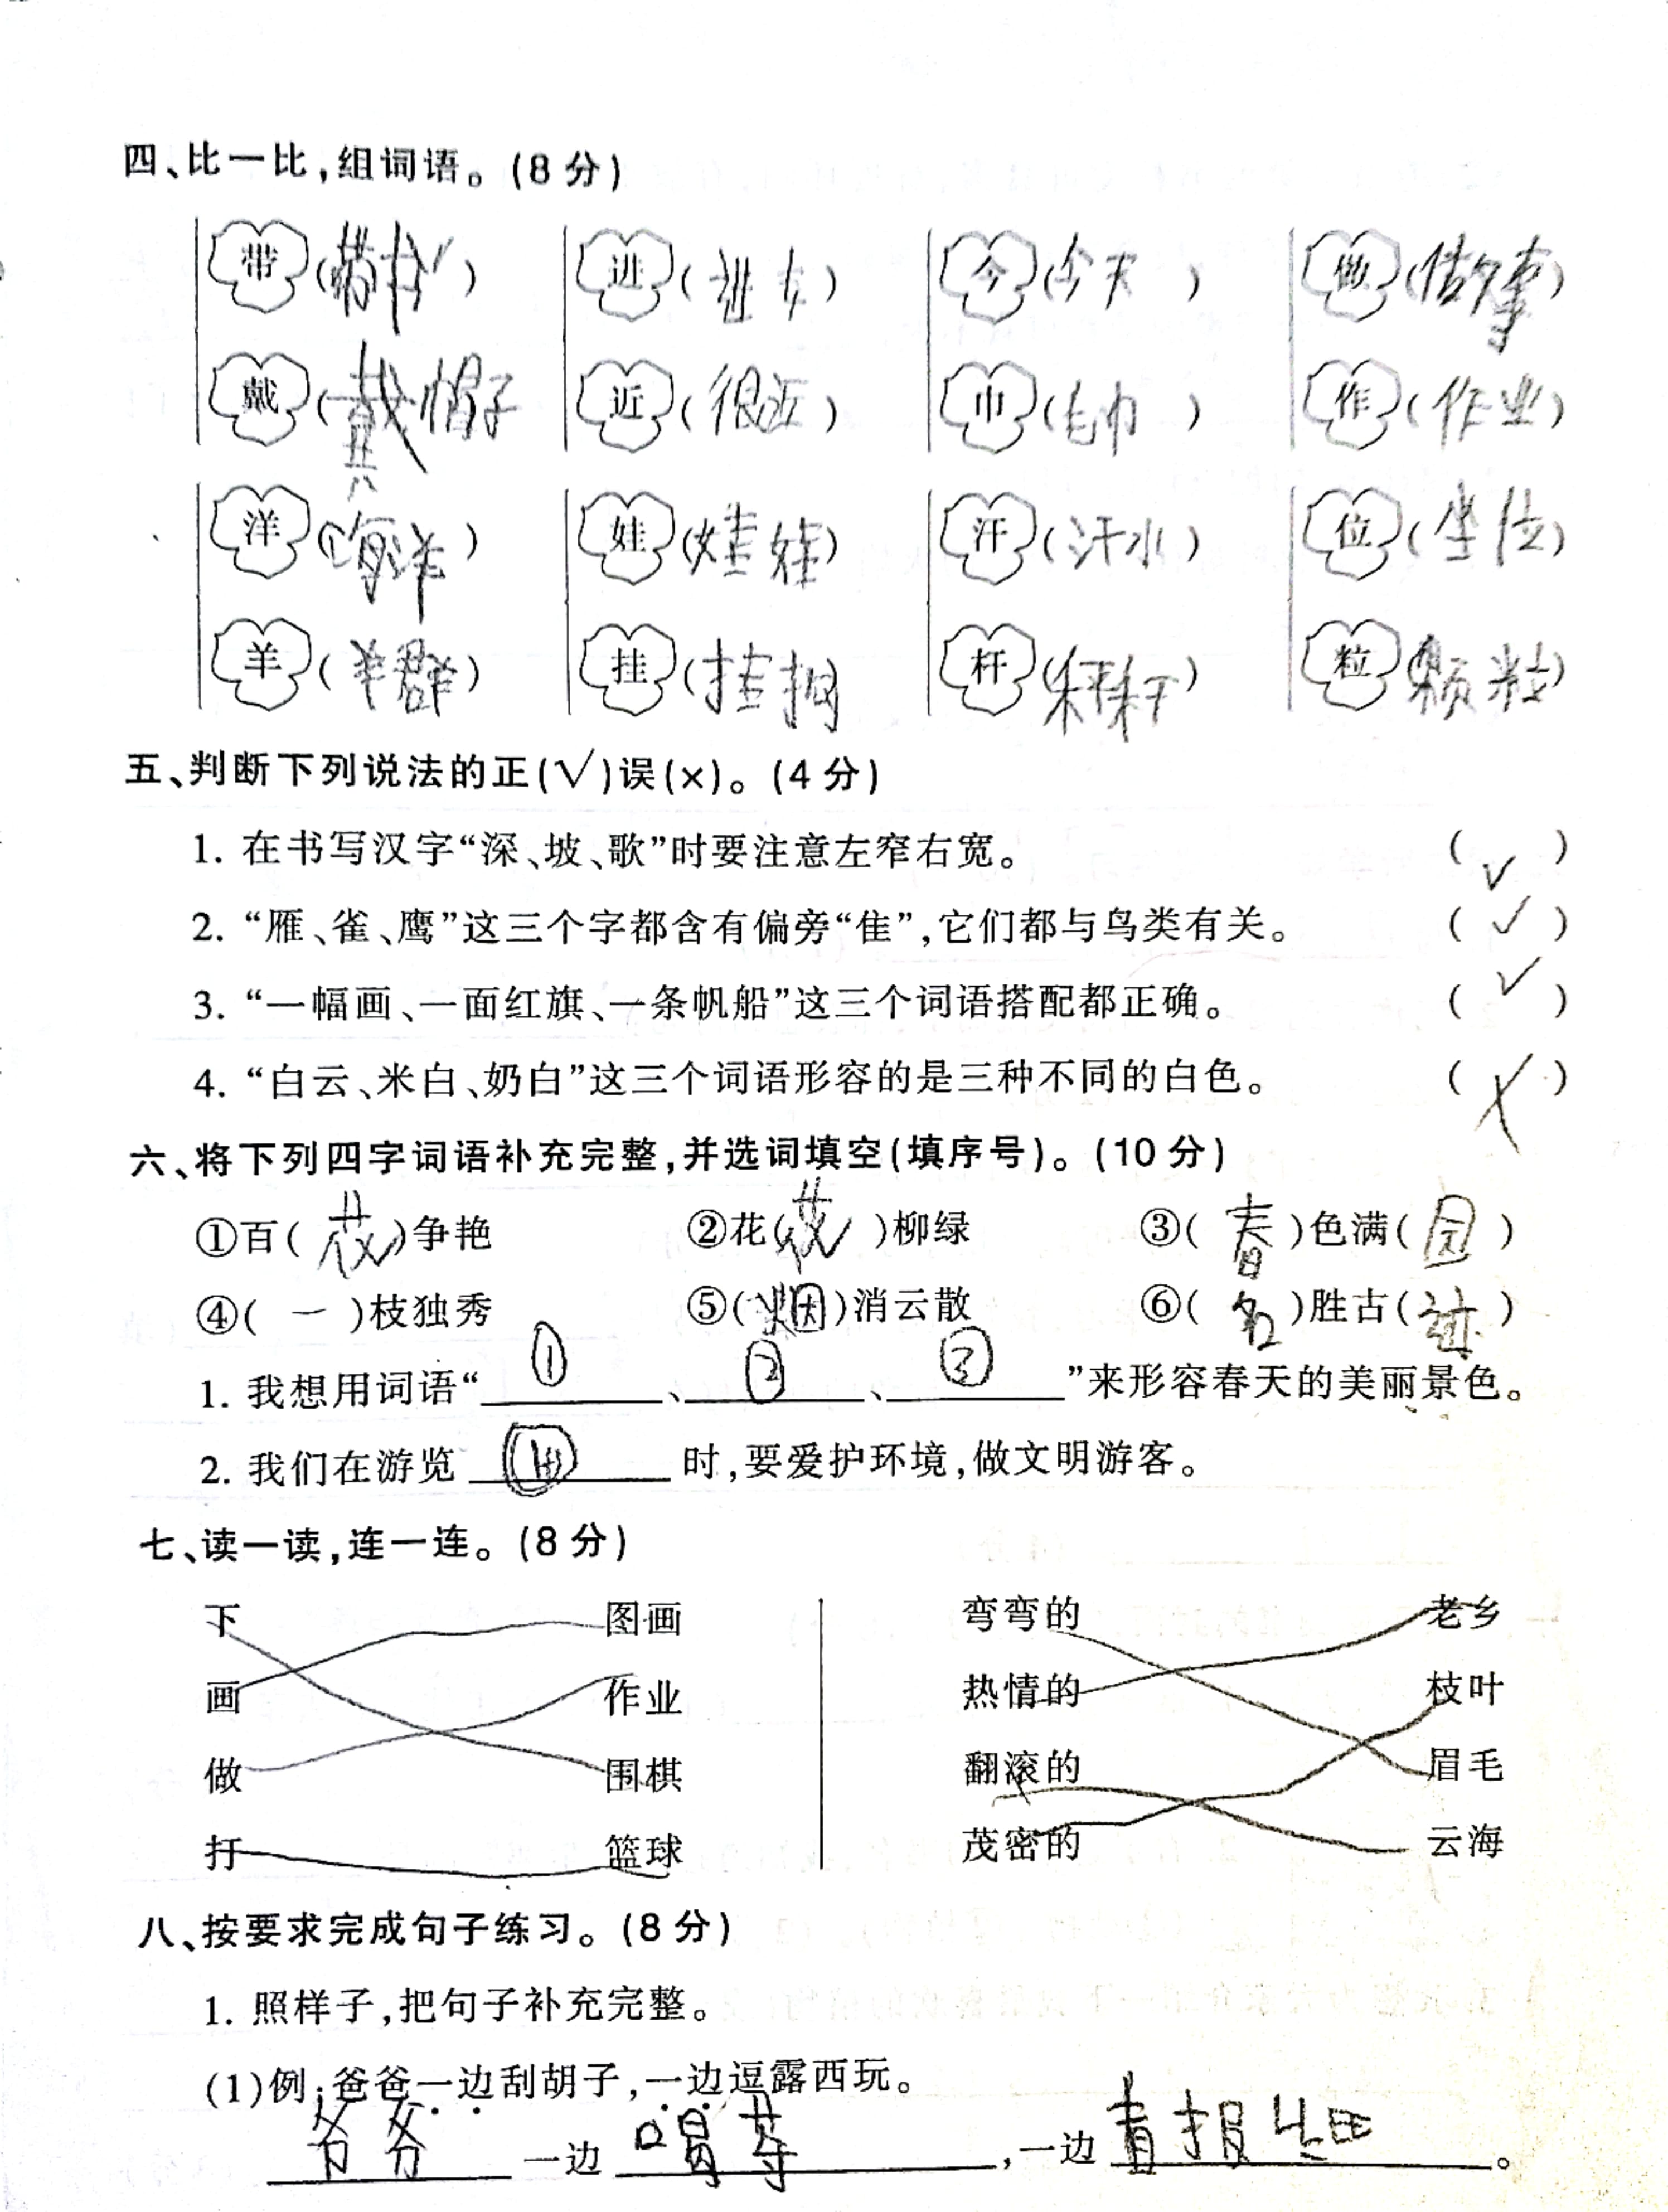 四、比一比,组词语。(8 分)
带(带书) 进(进去) 今(今天) 做(做事)
戴(戴帽子 近(很近) 巾(毛巾) 作(作业)
洋(海洋) 娃(娃娃) 汗(汗水) 位(坐位)
羊(羊群) 挂(挂钩) 杆() 粒(颗粒)
五、判断下列说法的正(√)误(×)。(4 分)
1. 在书写汉字“深、坡、歌”时要注意左窄右宽。 (√)
2. “雁、雀、鹰”这三个字都含有偏旁“隹”,它们都与鸟类有关。 (√)
3. “一幅画、一面红旗、一条帆船”这三个词语搭配都正确。 (√)
4. “白云、米白、奶白”这三个词语形容的是三种不同的白色。 (×)
六、将下列四字词语补充完整,并选词填空(填序号)。(10 分)
①百(花)争艳 ②花()柳绿 ③(春)色满(园)
④(一)枝独秀 ⑤(烟)消云散 ⑥(名)胜古(迹)
1. 我想用词语“①、②、③”来形容春天的美丽景色。
2. 我们在游览 时,要爱护环境,做文明游客。
七、读一读,连一连。(8 分)
下 图画 弯弯的 老乡
画 作业 热情的 枝叶
做 围棋 翻滚的 眉毛
打 篮球 茂密的 云海
八、按要求完成句子练习。(8 分)
1. 照样子,把句子补充完整。
(1)例:爸爸一边刮胡子,一边逗露西玩。
爷爷 一边 喝茶,一边 看报纸。